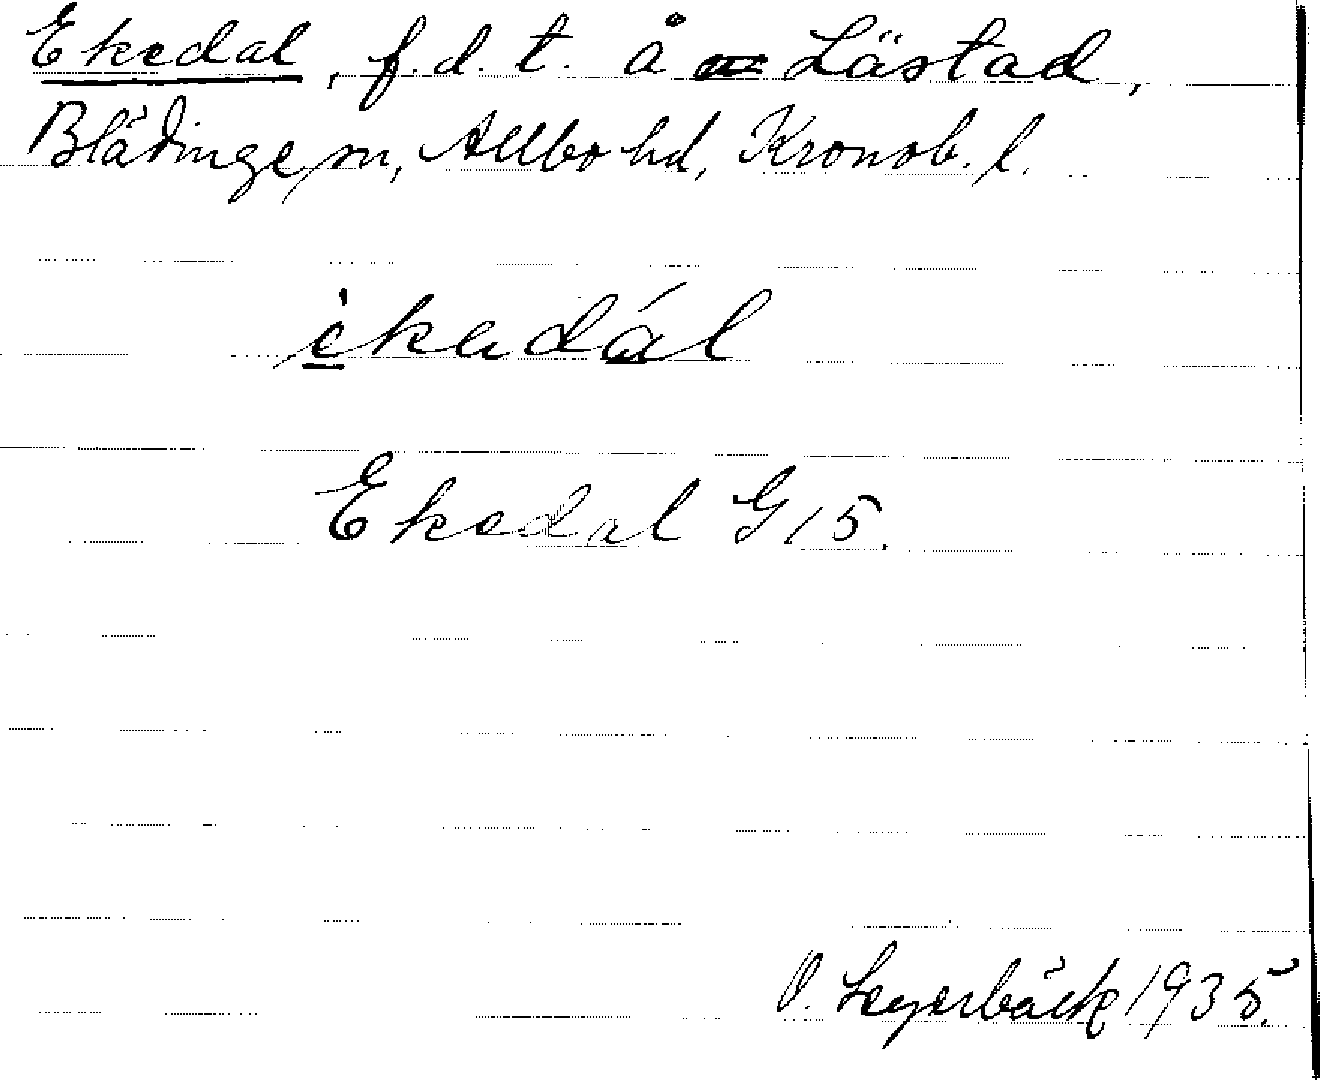 Ekedal, f.d. t. å Lästad,
Blädinge sn, Allbo hd, Kronob. l.
èkadál
Ekedal G 15.
O. Legerbäck 1935.